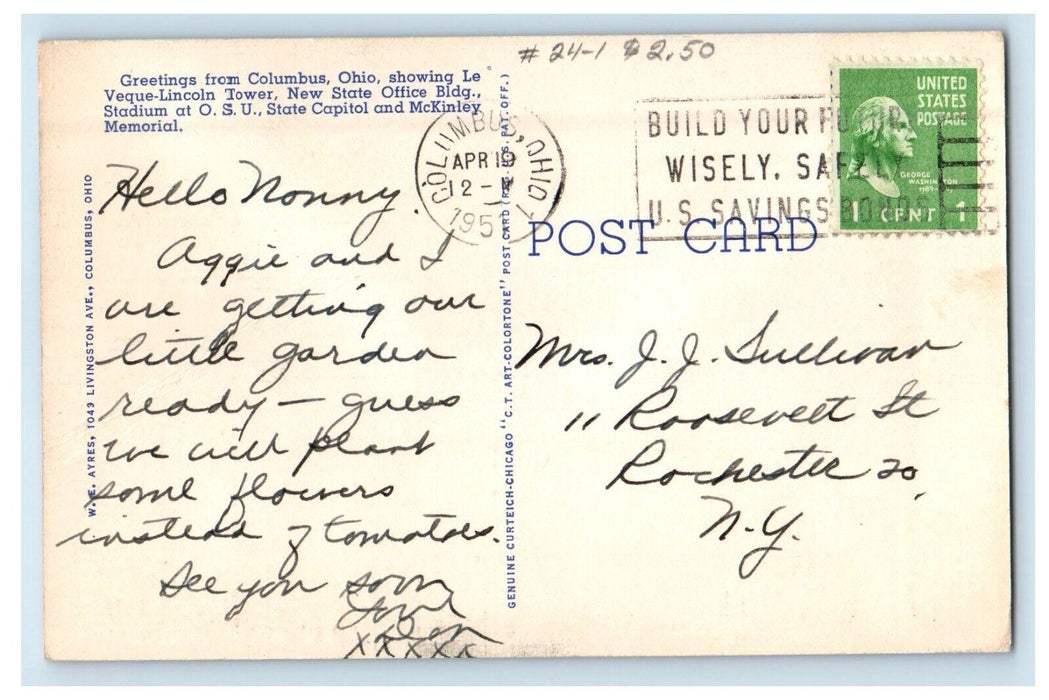 # 24-1 $2.50
Greetings from Columbus, Ohio, showing Le
Veque-Lincoln Tower, New State Office Bldg.,
Stadium at O. S. U., State Capitol and McKinley
Memorial.
COLUMBUS, OHIO
APR 19
12 -
195
BUILD YOUR FUTURE
WISELY, SAFELY
U.S. SAVINGS BONDS
UNITED
STATES
POSTAGE
GEORGE
WASHINGTON
1789-
1 CENT 1
POST CARD
Hello Nonny.
Aggie and I
are getting our
little garden
ready — guess
we will plant
some flowers
instead of tomatoes.
See you soon
Love
Don
XXXXX
Mrs. J. J. Sullivan
11 Roosevelt St
Rochester 20,
N.Y.
W. E. AYRES, 1049 LIVINGSTON AVE., COLUMBUS, OHIO
GENUINE CURTEICH-CHICAGO "C.T. ART-COLORTONE" POST CARD (REG. U.S. PAT. OFF.)